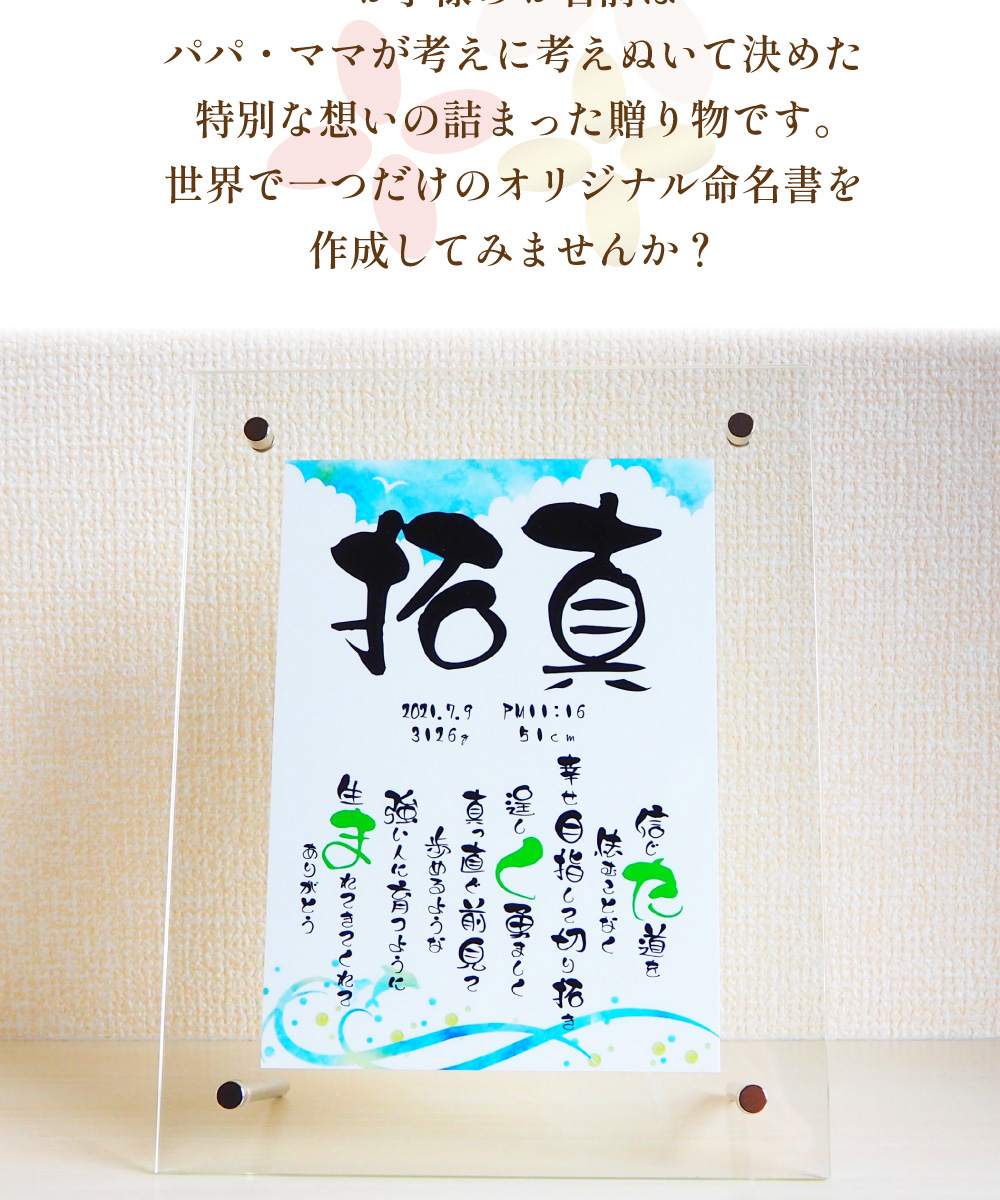 お子様のお名前は
パパ・ママが考えに考えぬいて決めた
特別な想いの詰まった贈り物です。
世界で一つだけのオリジナル命名書を
作成してみませんか？
拓真
2021.7.9 PM11:16
3126g 51cm
信じた道を
怯むことなく
幸せ目指して切り拓き
逞しく勇ましく
真っ直ぐ前見て
歩めるような
強い人に育つように
生まれてきてくれて
ありがとう